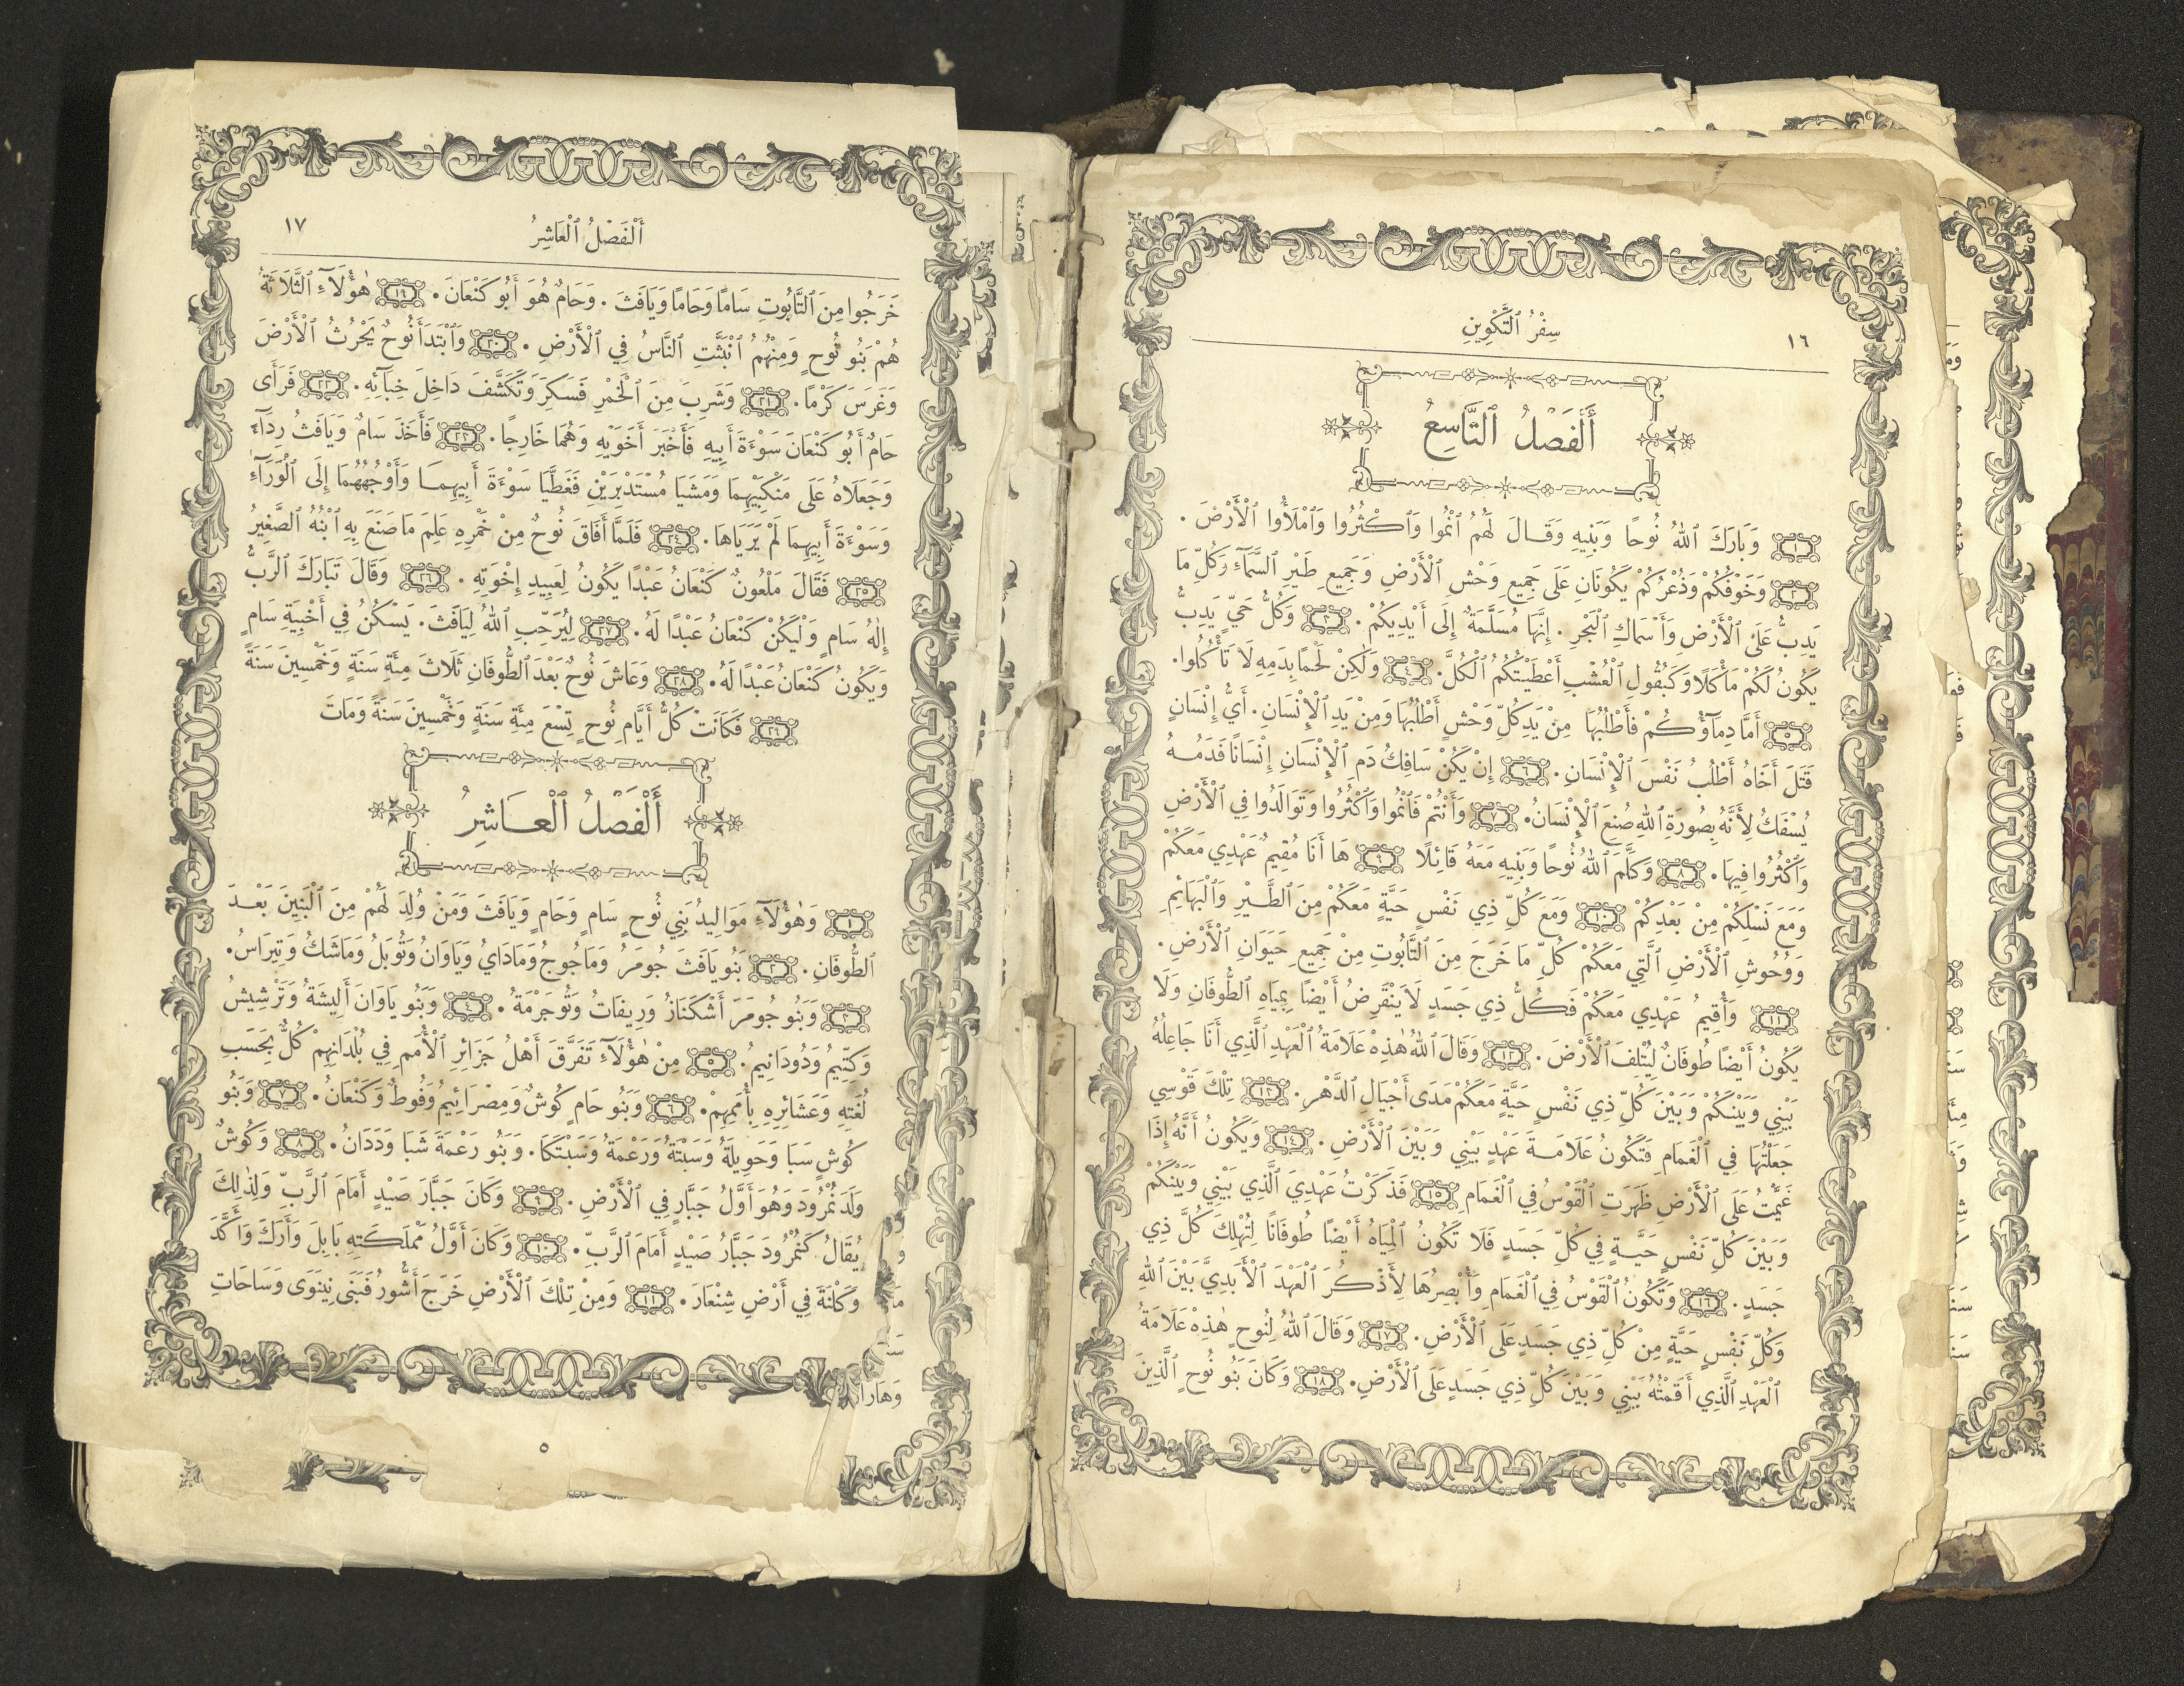 ١٦
سِفْرُ ٱلتَّكْوِينِ
أَلْفَصْلُ ٱلتَّاسِعُ
١ وَبَارَكَ ٱللهُ نُوحًا وَبَنِيهِ وَقَالَ لَهُمُ ٱنْمُوا وَٱكْثُرُوا وَٱمْلَأُوا ٱلْأَرْضَ.
٢ وَخَوْفُكُمْ وَذُعْرُكُمْ يَكُونَانِ عَلَى جَمِيعِ وَحْشِ ٱلْأَرْضِ وَجَمِيعِ طَيْرِ ٱلسَّمَآءِ وَكُلِّ مَا
يَدِبُّ عَلَى ٱلْأَرْضِ وَأَسْمَاكِ ٱلْبَحْرِ. إِنَّهَا مُسَلَّمَةٌ إِلَى أَيْدِيكُمْ. ٣ وَكُلُّ حَيٍّ يَدِبُّ
يَكُونُ لَكُمْ مَأْكَلًا وَكَبُقُولِ ٱلْعُشْبِ أَعْطَيْتُكُمُ ٱلْكُلَّ. ٤ وَلٰكِنْ لَحْمًا بِدَمِهِ لَا تَأْكُلُوا.
٥ أَمَّا دِمَآؤُكُمْ فَأَطْلُبُهَا مِنْ يَدِ كُلِّ وَحْشٍ أَطْلُبُهَا وَمِنْ يَدِ ٱلْإِنْسَانِ. أَيُّ إِنْسَانٍ
قَتَلَ أَخَاهُ أَطْلُبُ نَفْسَ ٱلْإِنْسَانِ. ٦ إِنْ يَكُنْ سَافِكُ دَمِ ٱلْإِنْسَانِ إِنْسَانًا فَدَمُهُ
يُسْفَكُ لِأَنَّهُ بِصُورَةِ ٱللهِ صُنِعَ ٱلْإِنْسَانُ. ٧ وَأَنْتُمْ فَٱنْمُوا وَٱكْثُرُوا وَتَوَالَدُوا فِي ٱلْأَرْضِ
وَٱكْثُرُوا فِيهَا. ٨ وَكَلَّمَ ٱللهُ نُوحًا وَبَنِيهِ مَعَهُ قَائِلًا ٩ هَا أَنَا مُقِيمٌ عَهْدِي مَعَكُمْ
وَمَعَ نَسْلِكُمْ مِنْ بَعْدِكُمْ ١٠ وَمَعَ كُلِّ ذِي نَفْسٍ حَيَّةٍ مَعَكُمْ مِنَ ٱلطَّيْرِ وَٱلْبَهَائِمِ
وَوُحُوشِ ٱلْأَرْضِ ٱلَّتِي مَعَكُمْ كُلِّ مَا خَرَجَ مِنَ ٱلتَّابُوتِ مِنْ جَمِيعِ حَيَوَانِ ٱلْأَرْضِ.
١١ وَأُقِيمُ عَهْدِي مَعَكُمْ فَكُلُّ ذِي جَسَدٍ لَا يَنْقَرِضُ أَيْضًا بِمِيَاهِ ٱلطُّوفَانِ وَلَا
يَكُونُ أَيْضًا طُوفَانٌ لِيُتْلِفَ ٱلْأَرْضَ. ١٢ وَقَالَ ٱللهُ هٰذِهِ عَلَامَةُ ٱلْعَهْدِ ٱلَّذِي أَنَا جَاعِلُهُ
بَيْنِي وَبَيْنَكُمْ وَبَيْنَ كُلِّ ذِي نَفْسٍ حَيَّةٍ مَعَكُمْ مَدَى أَجْيَالِ ٱلدَّهْرِ. ١٣ تِلْكَ قَوْسِي
جَعَلْتُهَا فِي ٱلْغَمَامِ فَتَكُونُ عَلَامَةَ عَهْدٍ بَيْنِي وَبَيْنَ ٱلْأَرْضِ. ١٤ وَيَكُونُ أَنَّهُ إِذَا
غَيَّمْتُ عَلَى ٱلْأَرْضِ ظَهَرَتِ ٱلْقَوْسُ فِي ٱلْغَمَامِ ١٥ فَذَكَرْتُ عَهْدِيَ ٱلَّذِي بَيْنِي وَبَيْنَكُمْ
وَبَيْنَ كُلِّ نَفْسٍ حَيَّةٍ فِي كُلِّ جَسَدٍ فَلَا تَكُونُ ٱلْمِيَاهُ أَيْضًا طُوفَانًا لِتُهْلِكَ كُلَّ ذِي
جَسَدٍ. ١٦ وَتَكُونُ ٱلْقَوْسُ فِي ٱلْغَمَامِ وَأُبْصِرُهَا لِأَذْكُرَ ٱلْعَهْدَ ٱلْأَبَدِيَّ بَيْنَ ٱللهِ
وَكُلِّ نَفْسٍ حَيَّةٍ مِنْ كُلِّ ذِي جَسَدٍ عَلَى ٱلْأَرْضِ. ١٧ وَقَالَ ٱللهُ لِنُوحٍ هٰذِهِ عَلَامَةُ
ٱلْعَهْدِ ٱلَّذِي أَقَمْتُهُ بَيْنِي وَبَيْنَ كُلِّ ذِي جَسَدٍ عَلَى ٱلْأَرْضِ. ١٨ وَكَانَ بَنُو نُوحٍ ٱلَّذِينَ
أَلْفَصْلُ ٱلْعَاشِرُ
١٧
خَرَجُوا مِنَ ٱلتَّابُوتِ سَامًا وَحَامًا وَيَافَثَ. وَحَامٌ هُوَ أَبُو كَنْعَانَ. ١٩ هٰؤُلَآءِ ٱلثَّلَاثَةُ
هُمْ بَنُو نُوحٍ وَمِنْهُمُ ٱنْبَثَّتِ ٱلنَّاسُ فِي ٱلْأَرْضِ. ٢٠ وَٱبْتَدَأَ نُوحٌ يَحْرُثُ ٱلْأَرْضَ
وَغَرَسَ كَرْمًا. ٢١ وَشَرِبَ مِنَ ٱلْخَمْرِ فَسَكِرَ وَتَكَشَّفَ دَاخِلَ خِبَآئِهِ. ٢٢ فَرَأَى
حَامٌ أَبُو كَنْعَانَ سَوْءَةَ أَبِيهِ فَأَخْبَرَ أَخَوَيْهِ وَهُمَا خَارِجًا. ٢٣ فَأَخَذَ سَامٌ وَيَافَثُ رِدَآءً
وَجَعَلَاهُ عَلَى مَنْكِبَيْهِمَا وَمَشَيَا مُسْتَدْبِرَيْنِ فَغَطَّيَا سَوْءَةَ أَبِيهِمَا وَأَوْجُهُهُمَا إِلَى ٱلْوَرَآءِ
وَسَوْءَةَ أَبِيهِمَا لَمْ يَرَيَاهَا. ٢٤ فَلَمَّا أَفَاقَ نُوحٌ مِنْ خَمْرِهِ عَلِمَ مَا صَنَعَ بِهِ ٱبْنُهُ ٱلصَّغِيرُ
٢٥ فَقَالَ مَلْعُونٌ كَنْعَانُ عَبْدًا يَكُونُ لِعَبِيدِ إِخْوَتِهِ. ٢٦ وَقَالَ تَبَارَكَ ٱلرَّبُّ
إِلٰهُ سَامٍ وَلْيَكُنْ كَنْعَانُ عَبْدًا لَهُ. ٢٧ لِيُرَحِّبِ ٱللهُ لِيَافَثَ. يَسْكُنُ فِي أَخْبِيَةِ سَامٍ
وَيَكُونُ كَنْعَانُ عَبْدًا لَهُ. ٢٨ وَعَاشَ نُوحٌ بَعْدَ ٱلطُّوفَانِ ثَلَاثَ مِئَةِ سَنَةٍ وَخَمْسِينَ سَنَةً
٢٩ فَكَانَتْ كُلُّ أَيَّامِ نُوحٍ تِسْعَ مِئَةِ سَنَةٍ وَخَمْسِينَ سَنَةً وَمَاتَ
أَلْفَصْلُ ٱلْعَاشِرُ
١ وَهٰؤُلَآءِ مَوَالِيدُ بَنِي نُوحٍ سَامٍ وَحَامٍ وَيَافَثَ وَمَنْ وُلِدَ لَهُمْ مِنَ ٱلْبَنِينَ بَعْدَ
ٱلطُّوفَانِ. ٢ بَنُو يَافَثَ جُومَرُ وَمَاجُوجُ وَمَادَايُ وَيَاوَانُ وَتُوبَلُ وَمَاشَكُ وَتِيرَاسُ.
٣ وَبَنُو جُومَرَ أَشْكَنَازُ وَرِيفَاتُ وَتُوجَرْمَةُ. ٤ وَبَنُو يَاوَانَ أَلِيشَةُ وَتَرْشِيشُ
وَكِتِّيمُ وَدُودَانِيمُ. ٥ مِنْ هٰؤُلَآءِ تَفَرَّقَ أَهْلُ جَزَائِرِ ٱلْأُمَمِ فِي بُلْدَانِهِمْ كُلٌّ بِحَسَبِ
لُغَتِهِ وَعَشَائِرِهِ بِأُمَمِهِمْ. ٦ وَبَنُو حَامٍ كُوشُ وَمِصْرَائِيمُ وَفُوطُ وَكَنْعَانُ. ٧ وَبَنُو
كُوشٍ سَبَا وَحَوِيلَةُ وَسَبْتَةُ وَرَعْمَةُ وَسَبْتَكَا. وَبَنُو رَعْمَةَ شَبَا وَدَدَانُ. ٨ وَكُوشٌ
وَلَدَ نُمْرُودَ وَهُوَ أَوَّلُ جَبَّارٍ فِي ٱلْأَرْضِ. ٩ وَكَانَ جَبَّارَ صَيْدٍ أَمَامَ ٱلرَّبِّ وَلِذٰلِكَ
يُقَالُ كَنُمْرُودَ جَبَّارُ صَيْدٍ أَمَامَ ٱلرَّبِّ. ١٠ وَكَانَ أَوَّلُ مَمْلَكَتِهِ بَابِلَ وَأَرَكَ وَأَكَّدَ
وَكَلْنَةَ فِي أَرْضِ شِنْعَارَ. ١١ وَمِنْ تِلْكَ ٱلْأَرْضِ خَرَجَ أَشُّورُ فَبَنَى نِينَوَى وَسَاحَاتِ
٥